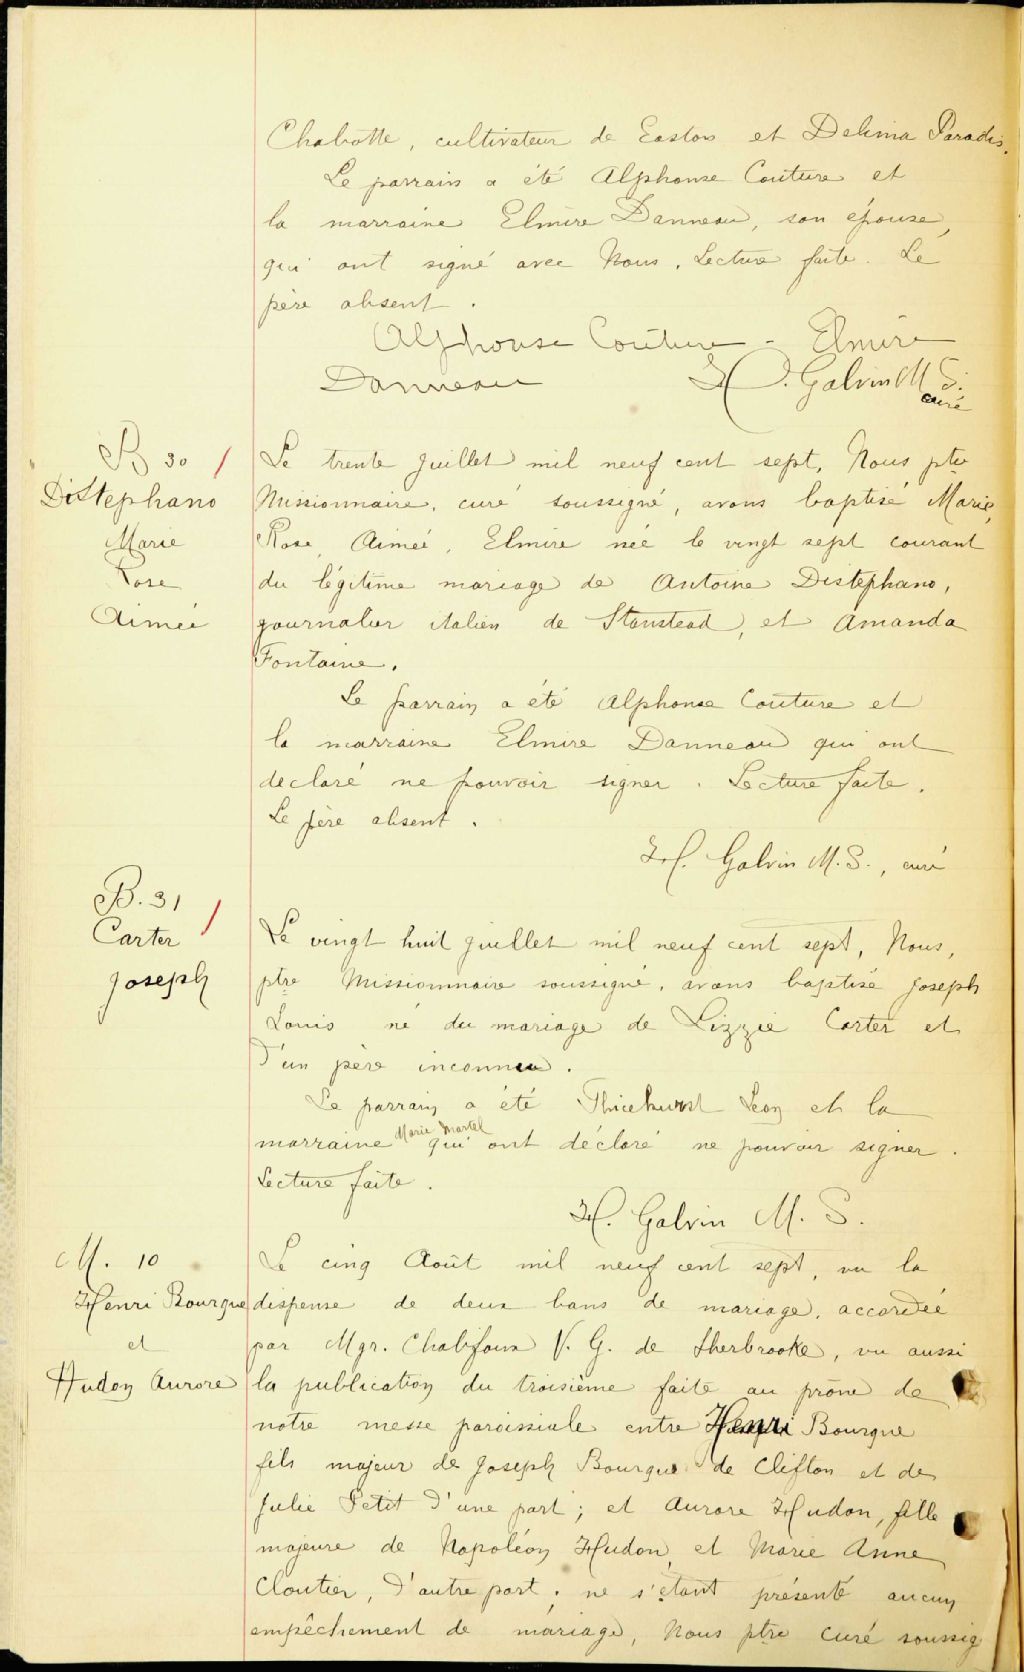 Chabotte, cultivateur de Easton et Delima Paradis.
Le parrain a été Alphonse Couture et
la marraine Elmire Danneau, son épouse,
qui ont signé avec Nous. Lecture faite. Le
père absent.
Alphonse Couture - Elmire
Danneau H. Galvin M S.
curé
B 30
DiStephano
Marie
Rose
Aimée
Le trente juillet mil neuf cent sept, Nous ptre
Missionnaire, curé soussigné, avons baptisé Marie,
Rose, Aimée, Elmire née le vingt sept courant
du légitime mariage de Antoine Distephano,
journalier italien de Stanstead, et Amanda
Fontaine.
Le parrain a été Alphonse Couture et
la marraine Elmire Danneau qui ont
declaré ne pouvoir signer. Lecture faite.
Le père absent.
H. Galvin M.S., curé
B. 31
Carter
Joseph
Le vingt huit juillet mil neuf cent sept, Nous,
ptre Missionnaire soussigné, avons baptisé Joseph
Louis né du mariage de Lizzie Carter et
d'un père inconnu.
Le parrain a été Leon et la
marraine Marie Martel qui ont déclaré ne pouvoir signer.
Lecture faite.
H. Galvin M. S.
M. 10
Henri Bourque
et
Hudon Aurore
Le cinq Août mil neuf cent sept, vu la
dispense de deux bans de mariage, accordée
par Mgr. Chalifoux V. G. de Sherbrooke, vu aussi
la publication du troisième faite au prône de
notre messe paroissiale entre Henri Bourque
fils majeur de Joseph Bourque de Clifton et de
Julie Petit d'une part; et Aurore Hudon, fille
majeure de Napoléon Hudon, et Marie Anne
Cloutier, d'autre part; ne s'étant présenté aucun
empêchement de mariage, Nous ptre curé soussig